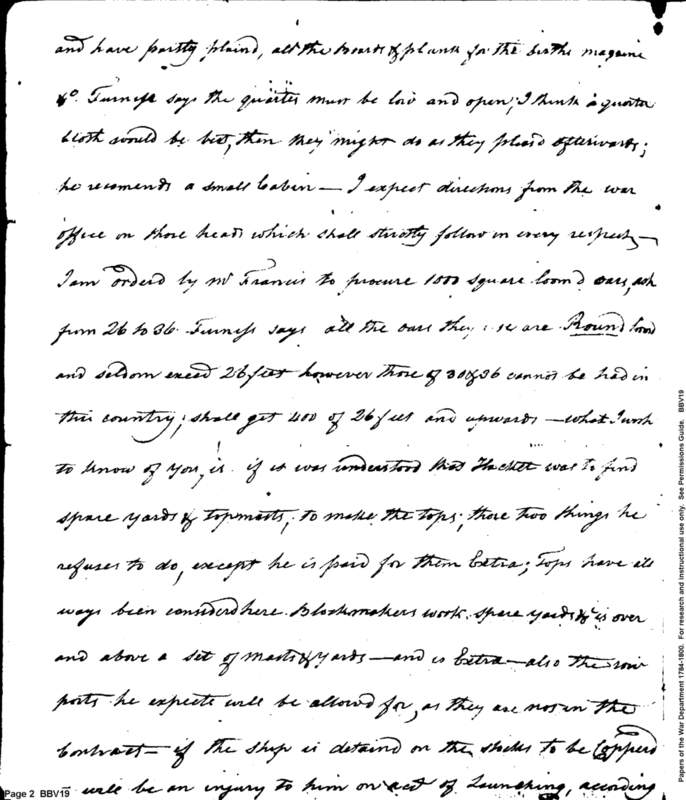 and have partly plaind, all the boards & plank for the births magazine
&c. Furness says the quarter must be low and open; I think a quarter
Cloth would be best, then they might do as they pleasd afterwards;
he recomends a small Cabin — I expect directions from the war
office on those heads which shall strictly follow in every respect, —
I am orderd by Mr Francis to procure 1000 square loomd oars, ash
from 26 to 36. Furness says all the oars they use are Round loomd
and seldom exceed 26 feet however those of 30 & 36 cannot be had in
this country; shall get 400 of 26 feet and upwards — what I wish
to know of you, is if it was understood that Hackett was to find
spare yards & topmasts; to make the tops; those two things he
refuses to do, except he is paid for them Extra; Tops have all
ways been considerd here Blockmakers work, spare yards &c is over
and above a set of masts & yards — and is Extra — also the row
ports he expects will be allowed for, as they are not in the
Contract — if the ship is detaind on the stocks to be Copperd
will be an injury to him on acct of Launching, according
Page 2 BBV19
Papers of the War Department 1784-1800. For research and instructional use only. See Permissions Guide. BBV19